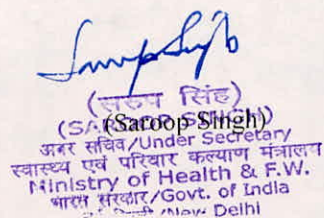 (सरुप सिंह)
(SAROOP SINGH)
(Saroop Singh)
अवर सचिव/Under Secretary
स्वास्थ्य एवं परिवार कल्याण मंत्रालय
Ministry of Health & F.W.
भारत सरकार/Govt. of India
नई दिल्ली/New Delhi